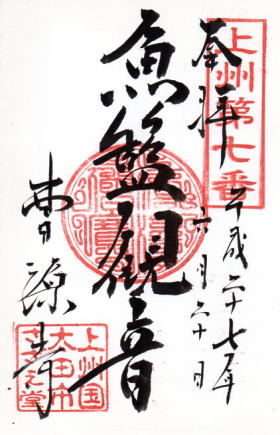 上州第七番
奉拝
平成二十七年
六月二十日
魚籃観音
曹源寺
上州国
太田市